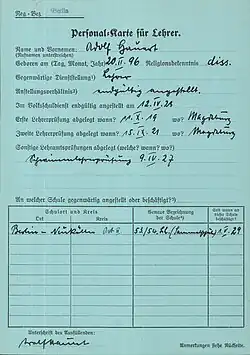 Reg.-Bez. Berlin
Personal-Karte für Lehrer.
Name und Vornamen: Adolf Hauert
(Rufnamen unterstreichen)
Geboren am (Tag, Monat, Jahr) 20. II. 96 Religionsbekenntnis diss.
Gegenwärtige Dienststellung¹) Lehrer
Anstellungsverhältnis²) endgültig angestellt.
Im Volksschuldienst endgültig angestellt am 12. IV. 21
Erste Lehrerprüfung abgelegt wann? 11. X. 19 wo? Magdeburg
Zweite Lehrerprüfung abgelegt wann? 15. IX. 21 wo? Magdeburg
Sonstige Lehramtsprüfungen abgelegt (welche? wann? wo?)
Schwimmlehrerprüfung 9. IV. 27
An welcher Schule gegenwärtig angestellt oder beschäftigt?³)
Schulort und Kreis
Ort Kreis
Genaue Bezeichnung der Schule⁴)
Seit wann an dieser Schule beschäftigt?
Berlin-Neukölln 53/54. 1. V. 29
Unterschrift des Ausfüllenden:
Adolf Hauert
Anmerkungen siehe Rückseite.